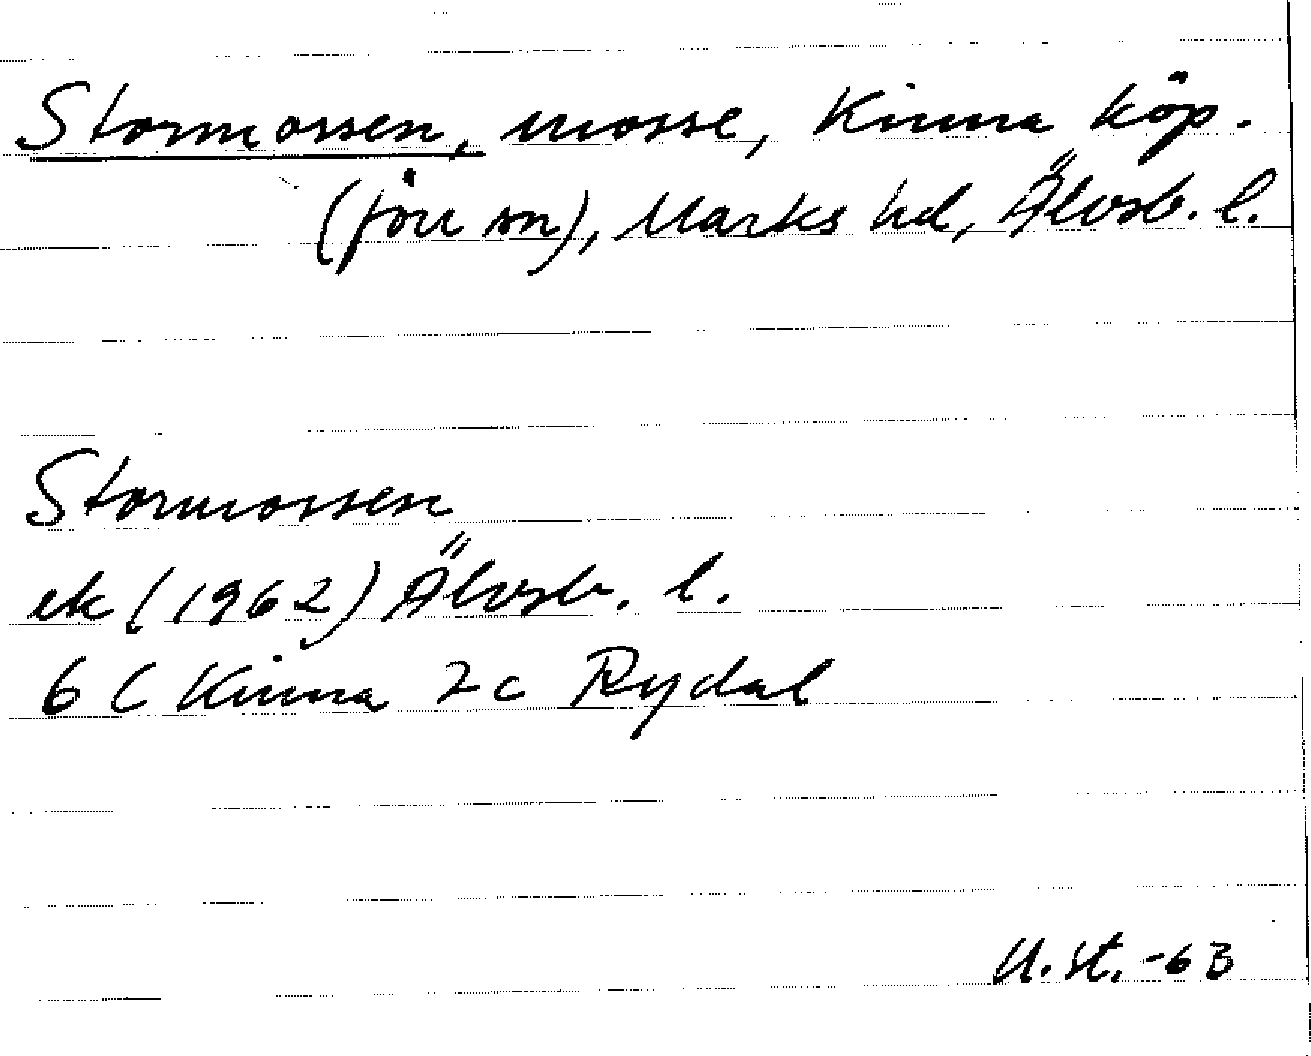 Stormossen, mosse, Kinna köp.
(förr sn), Marks hd, Älvsb. l.
Stormossen
ek (1962) Älvsb. l.
6 C Kinna 2c Rydal
U. St. -63